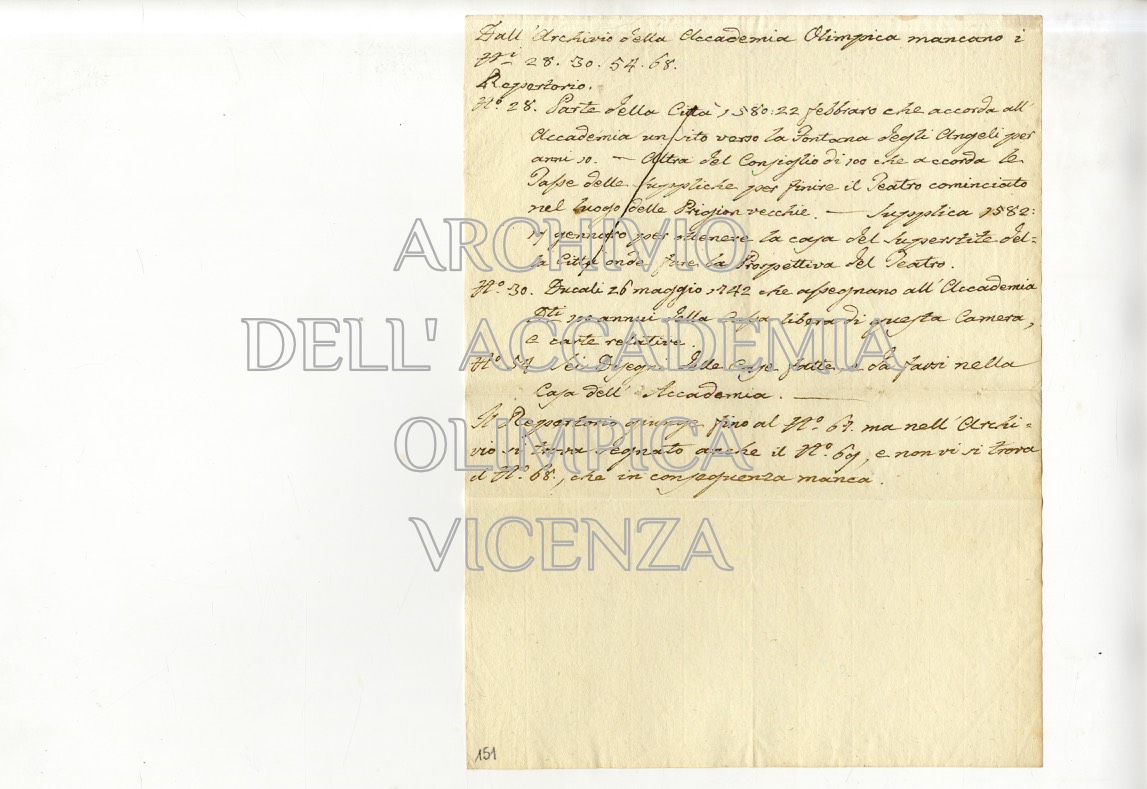 Dall'Archivio della Accademia Olimpica mancano i
Nri 28. 30. 54. 68.
Repertorio.
No. 28. Parte della Città 1580: 22 febbraro che accorda all'
Accademia un sito verso la Fontana degli Angeli per
anni 10. — Altra del Consiglio di 100 che accorda le
Tasse delle suppliche per finire il Teatro cominciato
nel luogo delle Prigion vecchie. — Supplica 1582:
17 gennaro per ottenere la casa del Superstite del=
la Città onde fare la Prospettiva del Teatro.
No. 30. Ducali 26 maggio 1742 che assegnano all'Accademia
Dti 100 annui della Cassa libera di questa Camera,
e carte relative.
No. 54 Sei Disegni delle case fatte e da farsi nella
Casa dell'Accademia. —
Il Repertorio giunge fino al No. 67. ma nell'Archi=
vio si trova segnato anche il No. 69, e non vi si trova
il No. 68., che in conseguenza manca.
ARCHIVIO
DELL'ACCADEMIA
OLIMPICA
VICENZA
151